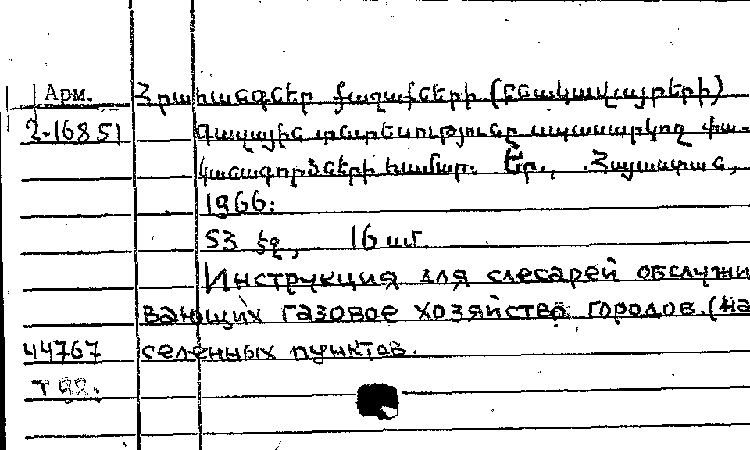 Арм.
2-16851
Հրահանգներ քաղաքների (բնակավայրերի)
գազային տնտեսությունը սպասարկող փա-
կանագործների համար. Եր., Հայաստան,
1966:
53 էջ, 16 սմ.
Инструкция для слесарей обслужи
вающих газовое хозяйство городов (на
селенных пунктов.
44767